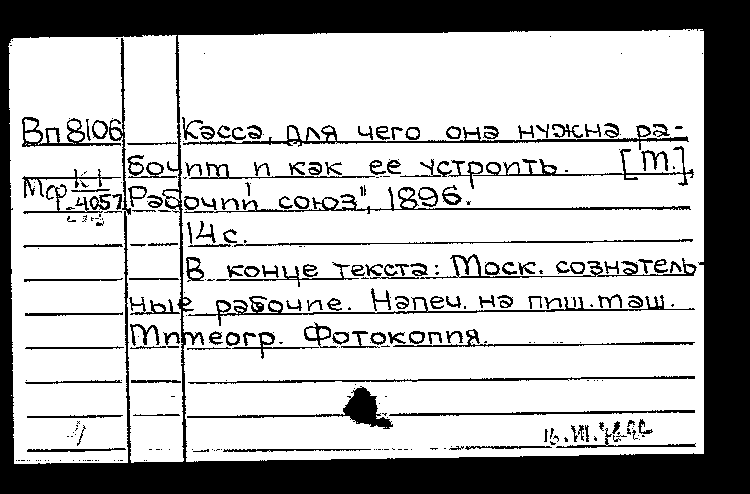 Вп 8106 Касса, для чего она нужна ра-
бочим и как ее устроить. [М.],
Мф К I
4057 "Рабочий союз", 1896.
14 с.
В конце текста: Моск. сознатель-
ные рабочие. Напеч. на пиш. маш.
Мимеогр. Фотокопия.